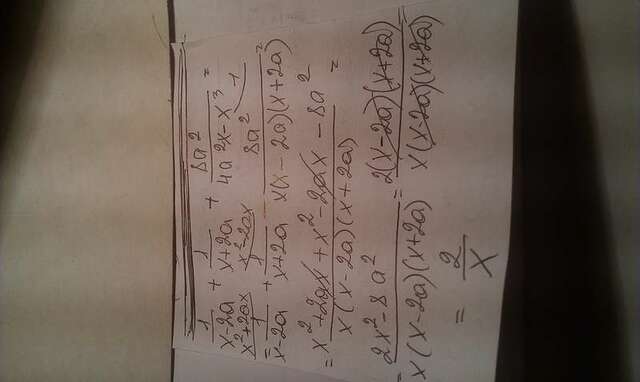 1/(x-2a) + 1/(x+2a) + 8a²/(4a²x-x³) =
x²+2ax x²-2ax 1
= 1/(x-2a) + 1/(x+2a) - 8a²/(x(x-2a)(x+2a)) =
= (x²+2ax+x²-2ax-8a²)/(x(x-2a)(x+2a)) =
= (2x²-8a²)/(x(x-2a)(x+2a)) = (2(x-2a)(x+2a))/(x(x-2a)(x+2a))
= 2/x